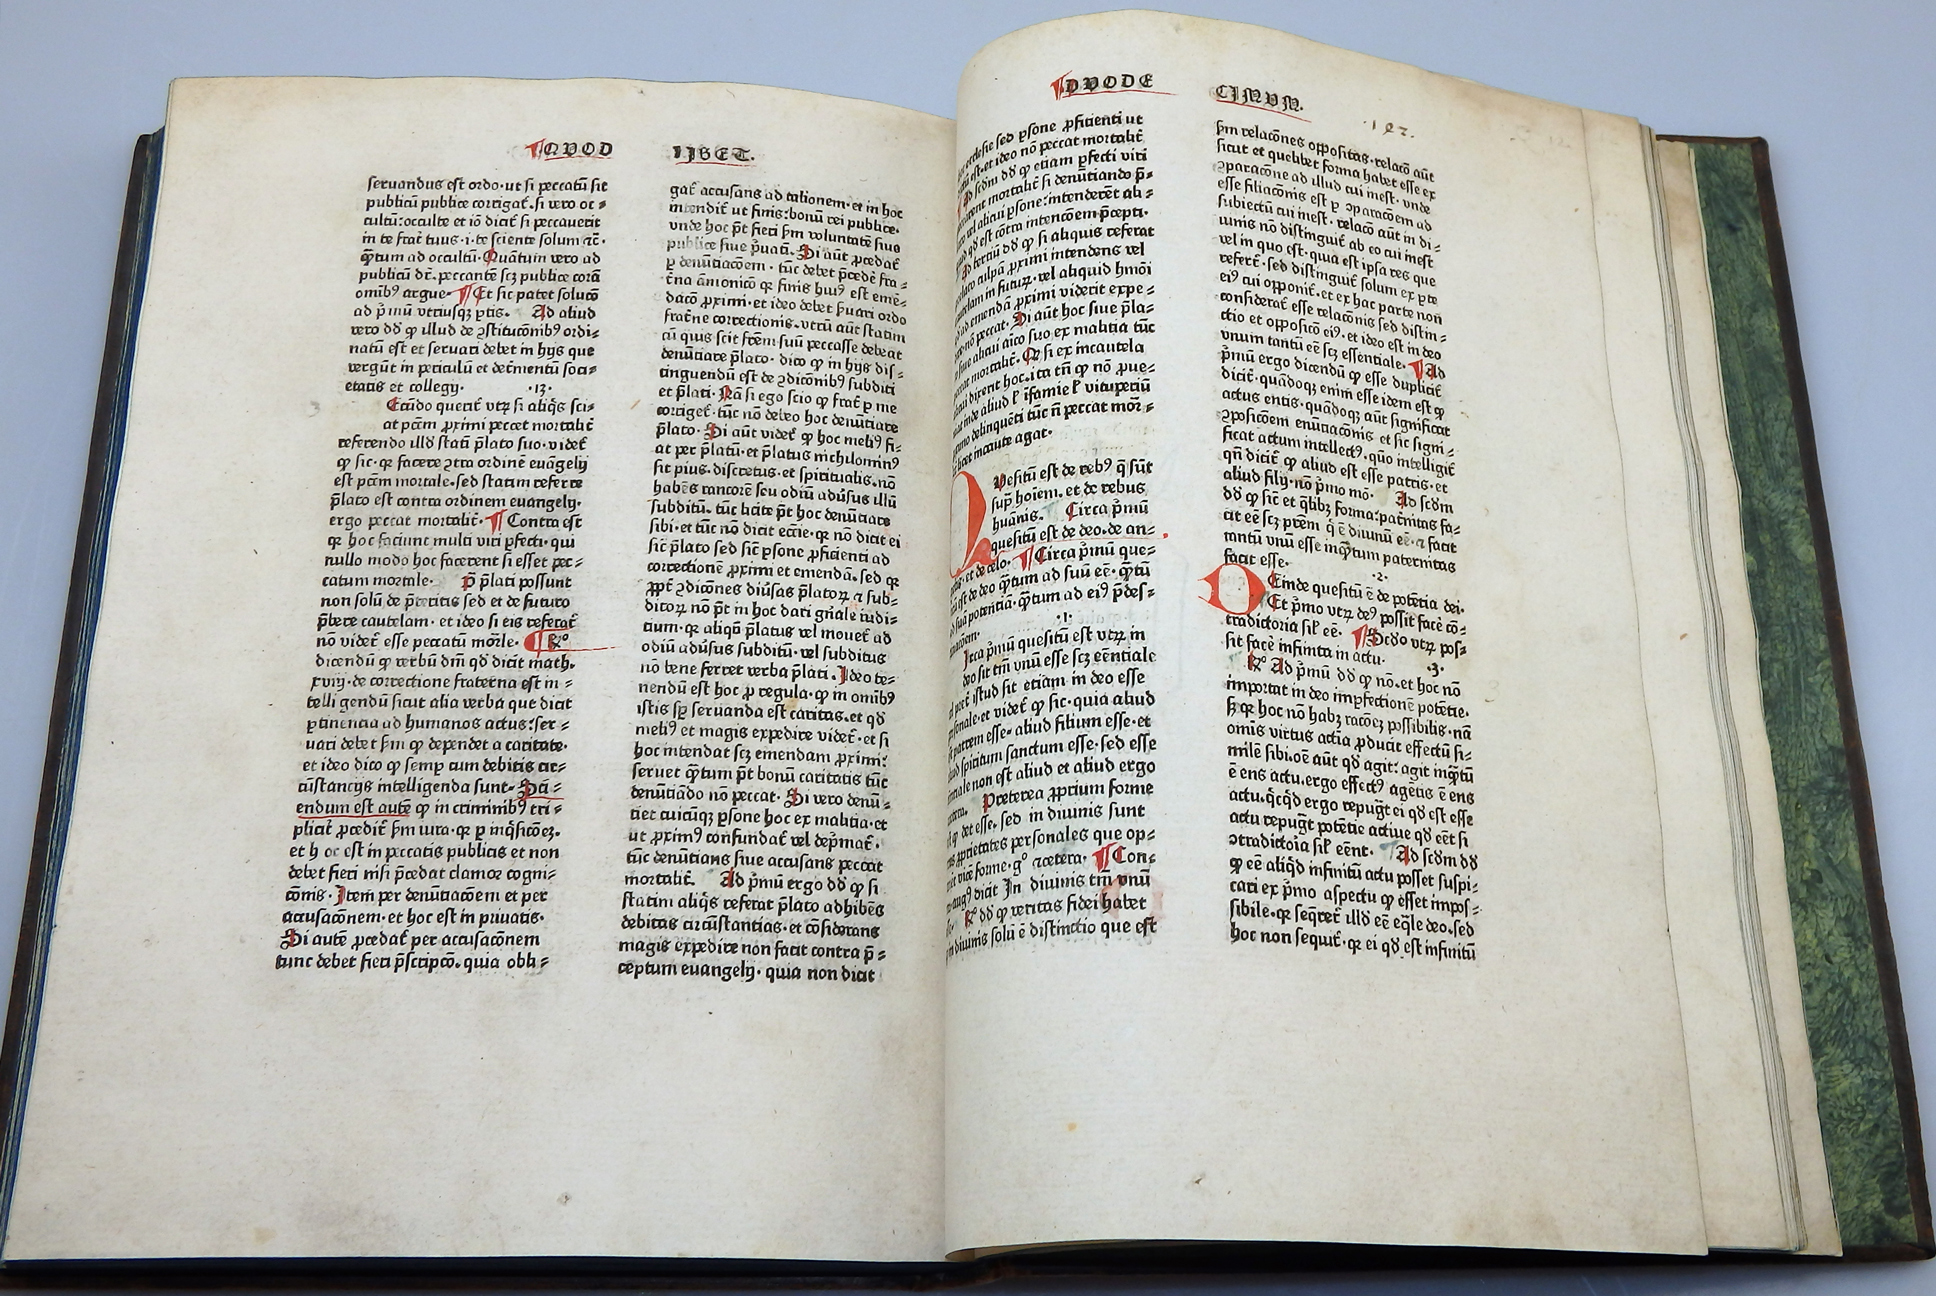 ¶QVOD LIBET.
seruandus est ordo·ut si peccatū sit
publicū publice corrigat̄·si vero oc⸗
cultū:occulte et iō dicit̄ si peccauerit
in te frat̄ tuus·i·te sciente solum ⁊c̄·
q̄tum ad occultū·Quātum vero ad
publicū dr̄·peccantē scꝫ publice corā
omībꝰ argue·¶Et sic patet solucō
ad p̄mū vtriusqꝫ ꝑtis· Ad aliud
vero dd̄ ꝙ illud de ꝯstitucōnibꝰ ordi⸗
natū est et seruari debet in hijs que
vergūt in periculū et det̄mentū soci⸗
etatis et collegij· ·13·
Ecūdo querit̄ vtꝝ si aliq̄s sci⸗
at pcc̄m ꝓximi peccet mortalit̄
referendo illd̄ statī p̄lato suo·videt̄
ꝙ sic·qꝛ facere ꝯtra ordinē euāgelij
est pcc̄m mortale·sed statim referre
p̄lato est contra ordinem euangelij·
ergo peccat mortalit̄·¶Contra est
qꝛ hoc faciunt multi viri ꝑfecti·qui
nullo modo hoc facerent si esset pec⸗
catum mortale· p̄lati possunt
non solū de p̄teritis sed et de futuro
p̄bere cautelam·et ideo si eis referat̄
nō videt̄ esse peccatū mōrle·¶R̄º
dicendū ꝙ verbū dn̄i qd̄ dicit math·
xviij·de correctione fraterna est in⸗
telligendū sicut alia verba que dicit
ꝑtinentia ad humanos actus:ser⸗
uari debet ẜm ꝙ dependet a caritate·
et ideo dico ꝙ semꝑ cum debitis cir⸗
cūstancijs intelligenda sunt·Sci⸗
endum est autē ꝙ in criminibꝰ tri⸗
plicit̄ ꝓcedit̄ ẜm iura·qꝛ ꝑ inq̄sicōeꝫ·
et hoc est in peccatis publicis et non
debet fieri nisi p̄cedat clamor cogni⸗
cōnis·Item per denūtiacōem et per
accusacōnem·et hoc est in priuatis·
Si autē ꝓcedat̄ per accusacōnem
tunc debet fieri p̄scripcō·quia obli⸗
gat̄ accusans ad talionem·et in hoc
intendit̄ ut finis:bonū rei publice·
vnde hoc p̄t fieri ẜm voluntatē siue
publice siue p̄uatī·Si aūt ꝓcedat̄
ꝑ denūtiacōem·tūc debet p̄cedē fra⸗
t̄na āmonicō qꝛ finis huiꝰ est emē⸗
dacō ꝓximi·et ideo debet ẜuari ordo
frat̄ne correctionis·vtrū aūt statim
cū quis scit fr̄em suū peccasse debeat
denūtiare p̄lato·dico ꝙ in hijs dis⸗
tinguendū est de ꝯdicōnibꝰ subditi
et p̄lati·Nā si ego scio ꝙ frat̄ ꝑ me
corriget̄·tūc nō debeo hoc denūtiare
p̄lato·Si aūt videt̄ ꝙ hoc meliꝰ fi⸗
at per p̄latū·et p̄latus nichilominꝰ
sit pius·discretus·et spiritualis·nō
habēs rancorē seu odiū adūsus illū
subditū·tūc licite p̄t hoc denūtiare
sibi·et tūc nō dicit ecc̄ie·qꝛ nō dicit ei
sic̄ p̄lato sed sic̄ ꝑsone ꝓficienti ad
correctionē ꝓximi et emendā·sed qꝛ
ꝓpt̄ ꝯdicōnes diūsas p̄latoꝝ ⁊ sub⸗
ditoꝝ nō p̄t in hoc dari gn̄ale iudi⸗
cium·qꝛ aliqñ p̄latus vel mouet̄ ad
odiū adūsus subditū·vel subditus
nō bene ferret verba p̄lati·Ideo te⸗
nendū est hoc ꝓ regula·ꝙ in omībꝰ
istis sꝑ seruanda est caritas·et qd̄
meliꝰ et magis expedire videt̄·et si
hoc intendat scꝫ emendam ꝓximi:
seruet q̄tum p̄t bonū caritatis tūc
denūtiādo nō peccat·Si vero denū⸗
ciet cuicūqꝫ ꝑsone hoc ex malitia·et
ut ꝓximꝰ confundat̄ vel dep̄mat̄·
tūc denūtians siue accusans peccat
mortalit̄· Ad p̄mū ergo dd̄ ꝙ si
statim aliq̄s referat p̄lato adhibēs
debitas circūstantias·et cōsiderans
magis expedire non facit contra p̄⸗
ceptum euangelij·quia non dicit
¶DVODE CIMVM.
·127·
ecclesie sed ꝑsone ꝓficienti ut
est·et ideo nō peccat mortalit̄
Ad scd̄m dd̄ ꝙ etiam ꝑfecti viri
mortalit̄ si denūtiando p̄⸗
vel alicui ꝑsone:intenderēt ali⸗
qd̄ est cōtra intencōem p̄cepti·
Ad tertiū dd̄ ꝙ si aliquis referat
culpā ꝓximi intendens vel
in futuꝝ·vel aliquid hmōi
ad emendā ꝓximi viderit expe⸗
nō peccat·Si aūt hoc siue p̄la⸗
siue alicui aīco suo ex malitia tūc
mortalit̄·Qꝛ si ex incautela
dixerit hoc·ita tn̄ ꝙ nō ꝓue⸗
inde aliud ł īfamie ł vituperiū
delinquēti tūc n̄ peccat mōr⸗
incaute agat·
Vesitū est de rebꝰ q̄ sūt
sup̄ hoīem·et de rebus
huānis· Circa p̄mū
quesitū est de deo·de an⸗
et de celo·¶Circa p̄mū que⸗
est de deo q̄tum ad suū ēē·q̄tū
ad suā potentiā·q̄tum ad eiꝰ p̄des⸗
·1·
Irca p̄mū quesitū est vtꝝ in
deo sit tm̄ vnū esse scꝫ eēntiale
istud sit etiam in deo esse
et videt̄ ꝙ sic·quia aliud
patrem esse·aliud filium esse·et
spiritum sanctum esse·sed esse
non est aliud et aliud ergo
Preterea ꝓprium forme
dat esse·sed in diuinis sunt
ꝓprietates personales que op⸗
vicē forme·gº ⁊cetera·¶Con⸗
augꝰ dicit In diuinis tm̄ vnū
R̄º dd̄ ꝙ veritas fidei habet
in diuinis solū ē distinctio que est
ẜm relacōnes oppositas·relacō aūt
sicut et quelibet forma habet esse ex
ꝯparacōne ad illud cui inest·vnde
esse filiacōnis est ꝑ ꝯparacōem ad
subiectū cui inest·relacō aūt in di⸗
uinis nō distinguit̄ ab eo cui inest
vel in quo est·quia est ipsa res que
refert̄·sed distinguit̄ solum ex ꝑte
eiꝰ cui opponit̄·et ex hac parte non
considerat̄ esse relacōnis sed distin⸗
ctio et oppositō eiꝰ·et ideo est in deo
vnum tantū ēē scꝫ essentiale·¶Ad
p̄mū ergo dicendū ꝙ esse duplicit̄
dicit̄·quādoqꝫ enim esse idem est ꝙ
actus entis·quādoqꝫ aūt significat
ꝯposicōem enūtiacōnis et sic signi⸗
ficat actum intellectꝰ·quō intelligit̄
qn̄ dicit̄ ꝙ aliud est esse patris·et
aliud filij·nō p̄mo mō· Ad scd̄m
dd̄ ꝙ sic̄ et q̄libꝫ forma:pat̄nitas fa⸗
cit ēē scꝫ ptēm q̄ ē diuinū ēē·⁊ facit
tantū vnū esse inq̄tum paternitas
facit esse· ·2·
DEinde quesitū ē de potētia dei·
Et p̄mo vtꝝ deꝰ possit facē cō⸗
tradictoria sił ēē· ¶Scd̄o vtꝝ pos⸗
sit facē infinita in actu· ·3·
R̄º Ad p̄mū dd̄ ꝙ nō·et hoc nō
importat in deo imꝑfectionē potētie·
sꝫ qꝛ hoc nō habꝫ racōeꝫ possibilis·nā
omīs virtus actīa ꝓducit effectū si⸗
milē sibi·oē aūt qd̄ agit:agit inq̄tū
ē ens actu·ergo effectꝰ agētis ē ens
actu·q̄cq̄d ergo repugt̄ ei qd̄ est esse
actu repugt̄ potētie actiue qd̄ eēt si
ꝯtradictoīa sił eēnt· Ad scd̄m dd̄
ꝙ ēē aliq̄d infinitū actu posset suspi⸗
cari ex p̄mo aspectu ꝙ esset impos⸗
sibile·qꝛ seq̄ret̄ illd̄ ēē eq̄le deo·sed
hoc non sequit̄·qꝛ ei qd̄ est infinitū